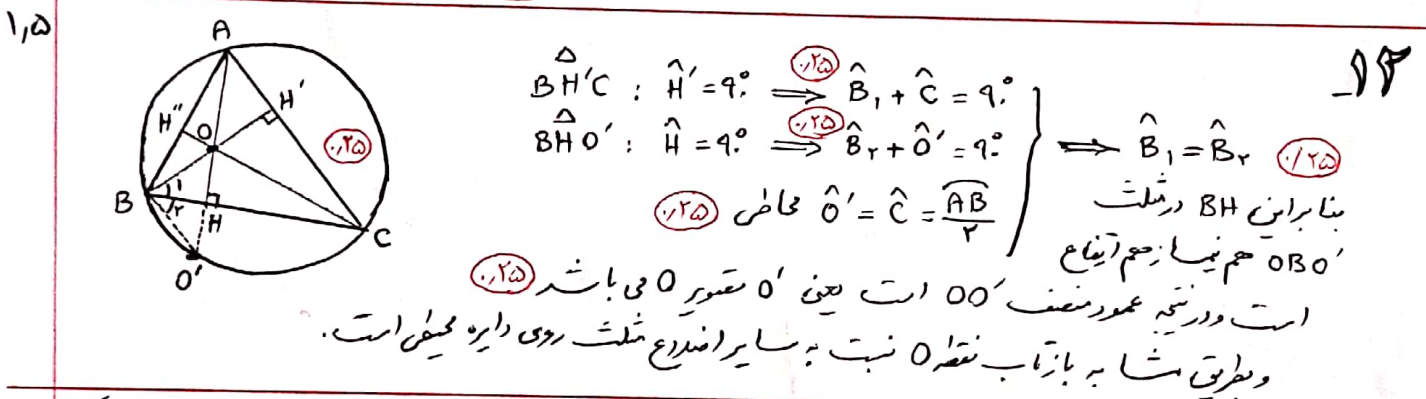 ۱,۵
۱۳_
A
H'
H''
O
۰,۲۵
B
۱
۲
H
C
O'
△BH'C : Ĥ' = ۹۰° ⟹ B̂₁ + Ĉ = ۹۰° ۰,۲۵
△BHO' : Ĥ = ۹۰° ⟹ B̂₂ + Ô' = ۹۰° ۰,۲۵
⟹ B̂₁ = B̂₂ ۰/۲۵
Ô' = Ĉ = AB/۲ محاطی ۰,۲۵
بنابراین BH در مثلث
OBO' هم نیمساز هم ارتفاع
است و در نتیجه عمود منصف OO' است یعنی O' تصویر O می باشد ۰,۲۵
و بطریق مشابه بازتاب نقطه O نسبت به سایر اضلاع مثلث روی دایره محیطی است.